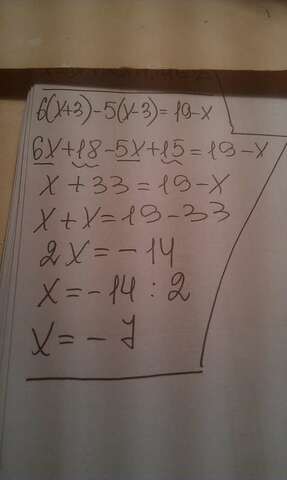 6(x+3)-5(x-3)=19-x
6x+18-5x+15=19-x
x+33=19-x
x+x=19-33
2x=-14
x=-14:2
x=-7